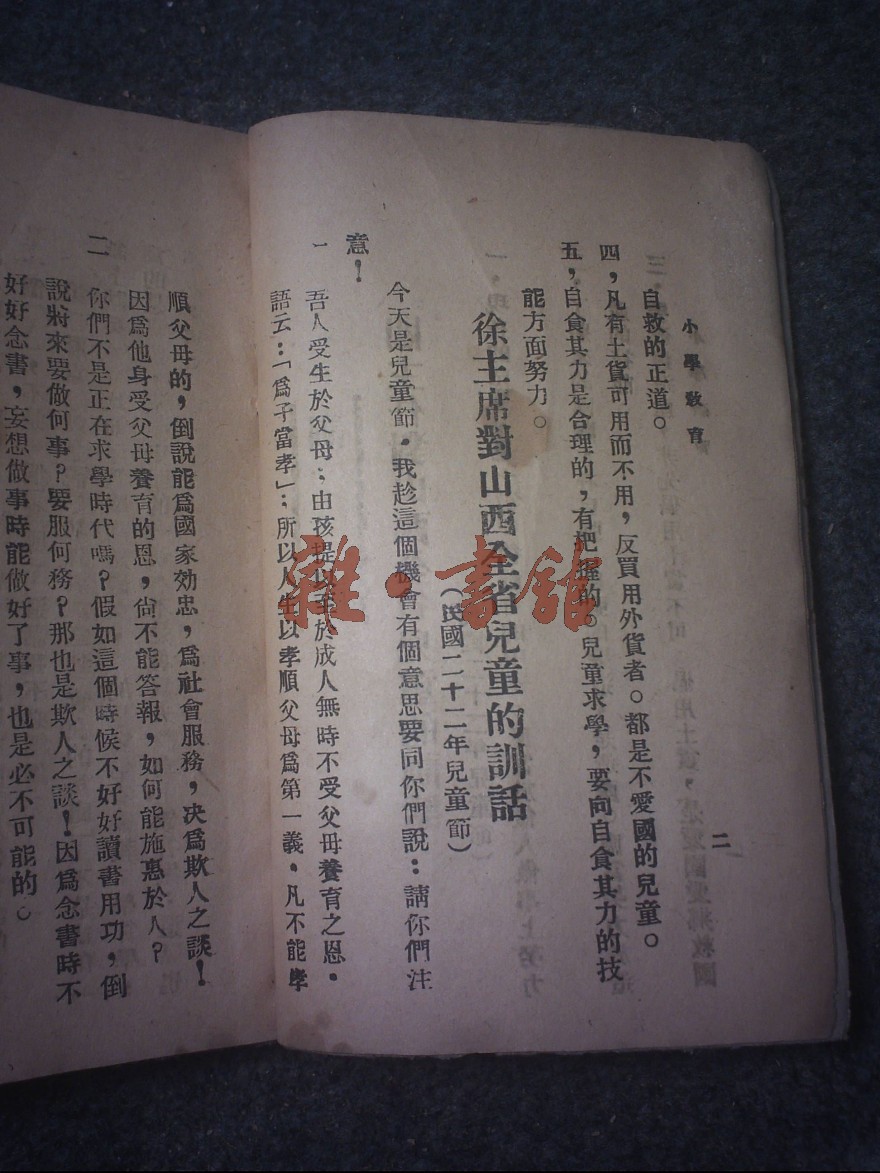 小學敎育
二
自救的正道。
四，凡有土貨可用而不用，反買用外貨者。都是不愛國的兒童。
五，自食其力是合理的，有把握的。兒童求學，要向自食其力的技
能方面努力。
徐主席對山西全省兒童的訓話
（民國二十二年兒童節）
今天是兒童節。我趁這個機會有個意思要同你們說：請你們注
意！
一 吾人受生於父母：由孩提以至於成人無時不受父母養育之恩。
語云：「爲子當孝」：所以人生以孝順父母爲第一義。凡不能孝
順父母的，倒說能爲國家効忠，爲社會服務，决爲欺人之談！
因爲他身受父母養育的恩，尙不能答報，如何能施惠於人？
二 你們不是正在求學時代嗎？假如這個時候不好好讀書用功，倒
說將來要做何事？要服何務？那也是欺人之談！因爲念書時不
好好念書，妄想做事時能做好了事，也是必不可能的。
雜·書舘